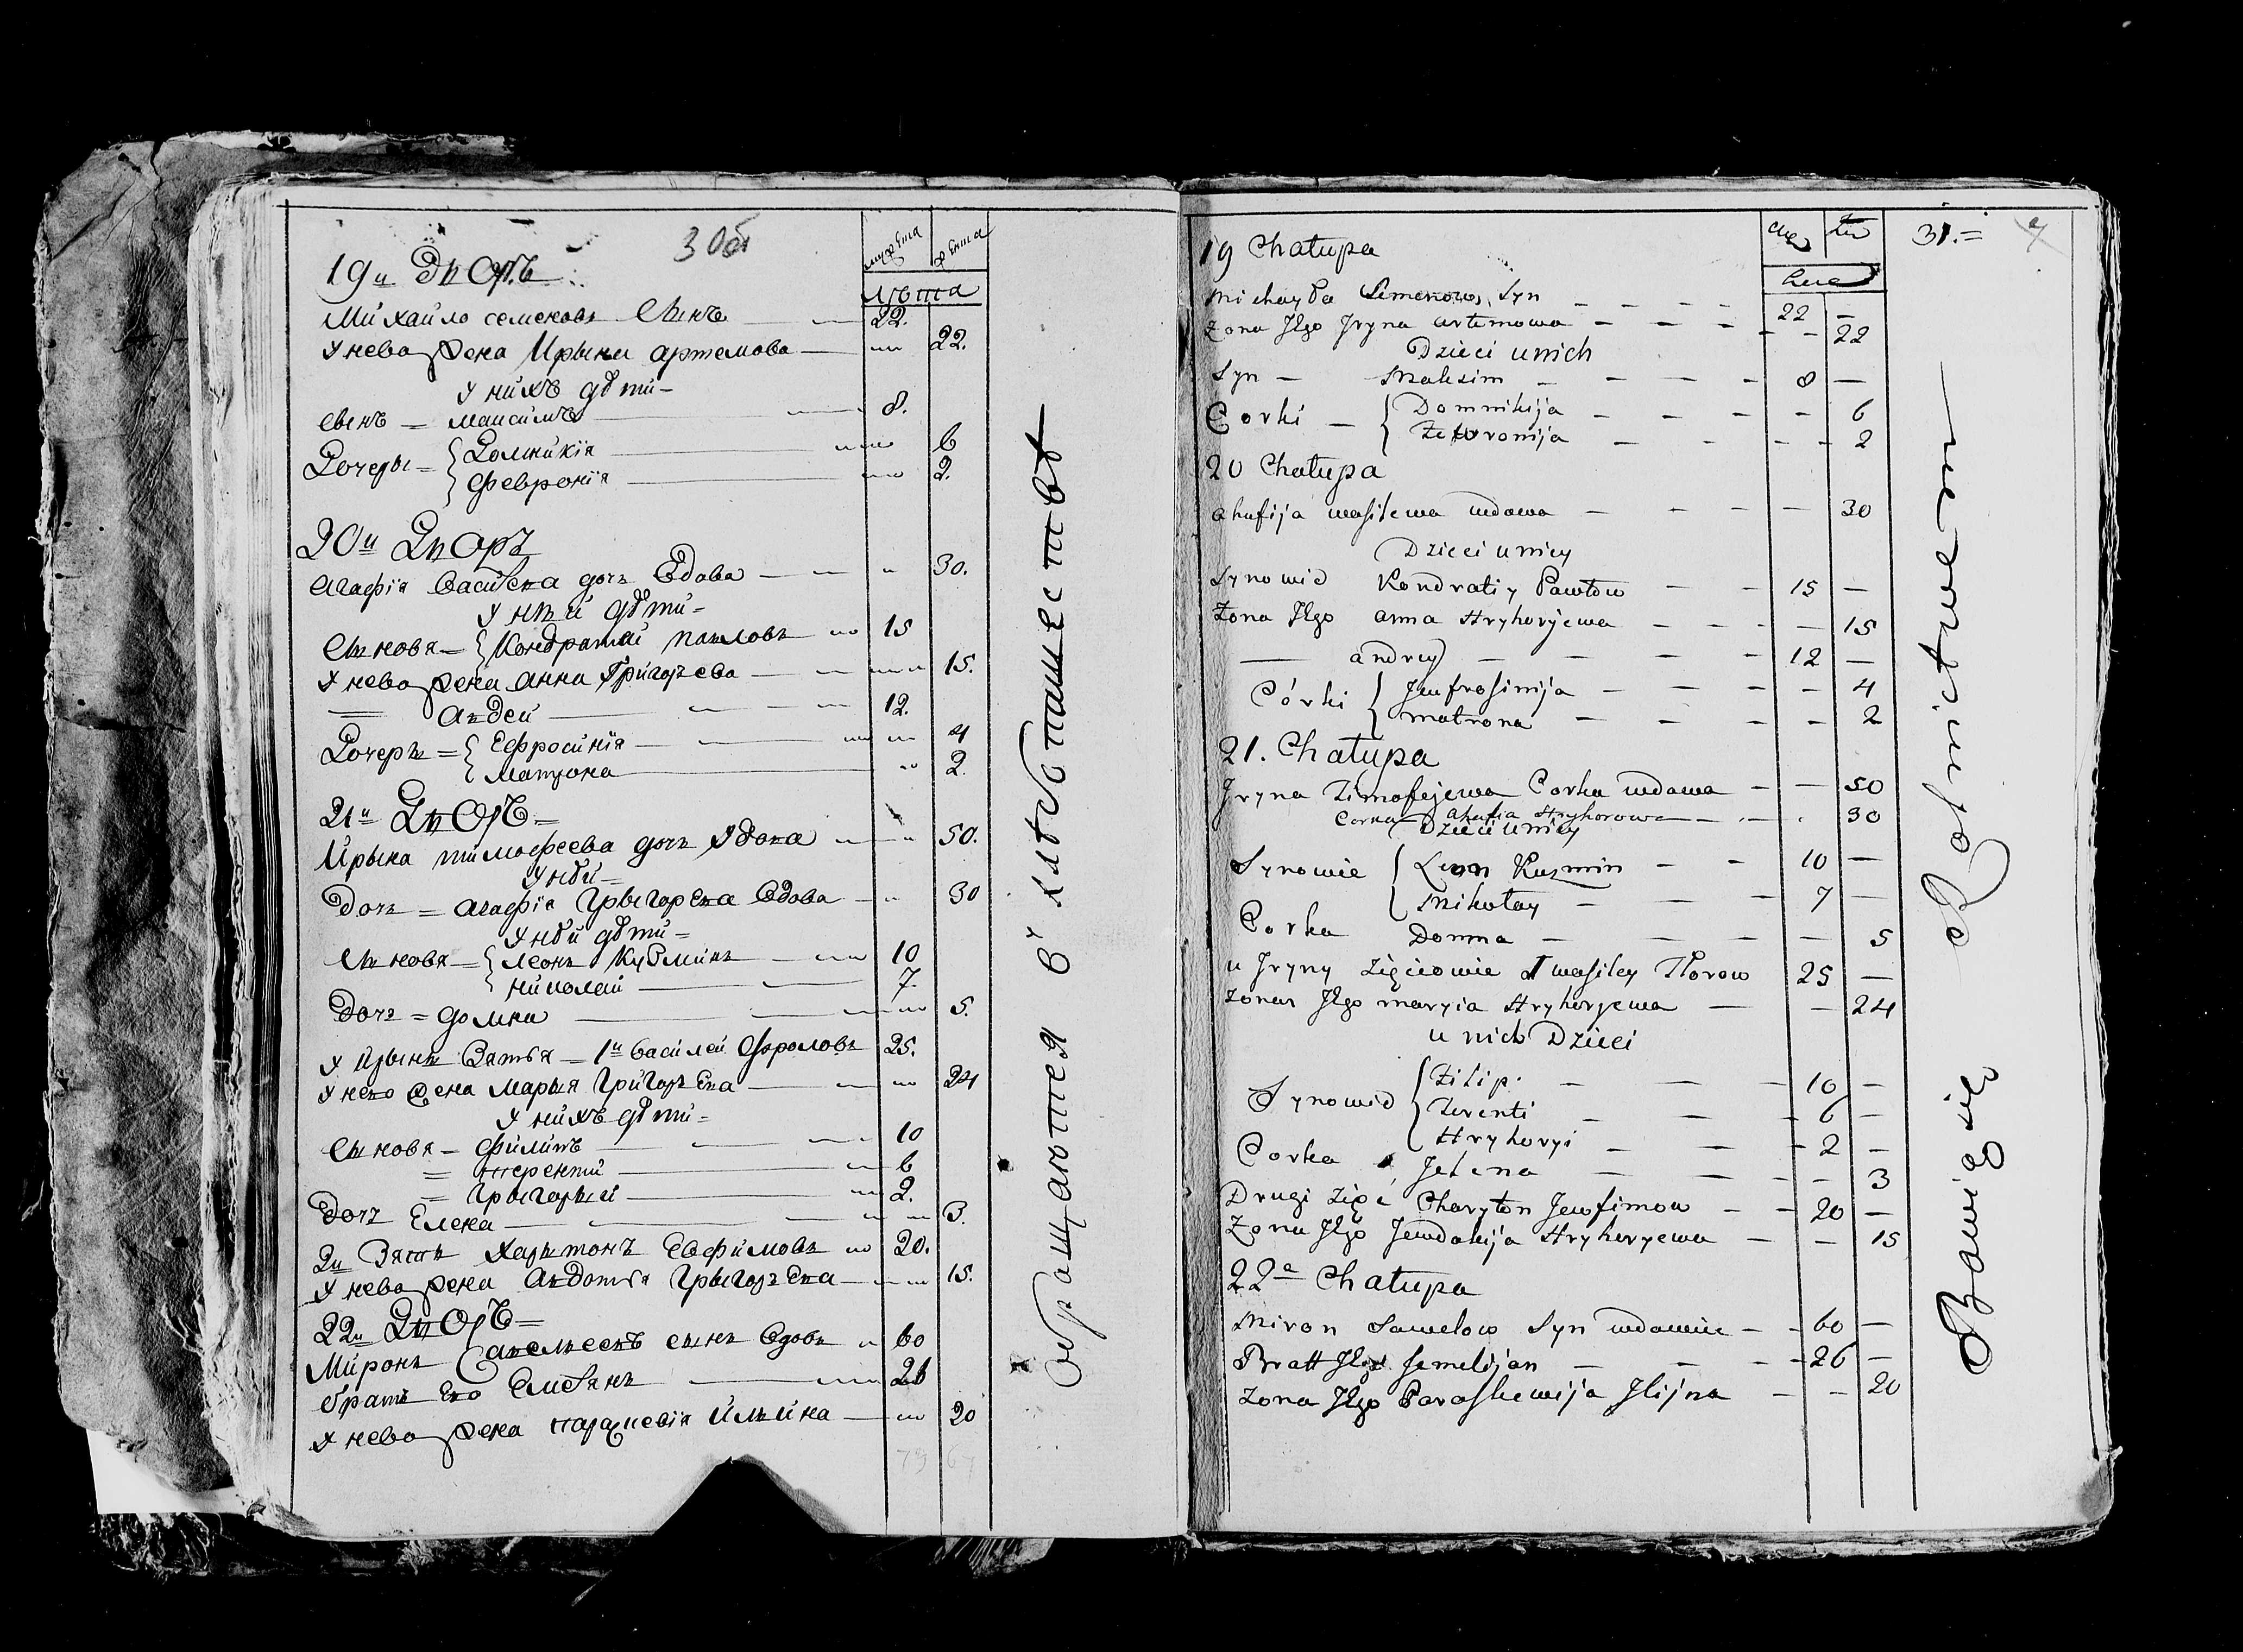 3 об
мужеска
женска
лѣта
19й Дворъ
Михайло семеновъ Сынъ — 22.
У нево жена Ирына артемова — 22.
У нихъ дѣти =
Сынъ = Максимъ — 8.
Дочеры = Домникїя — 6
Феврония — 2.
20й Дворъ
Агафїя Василева дочъ Вдова — 30.
У нѣй дѣти =
Сыновя = Кондратий павловъ — 15
У нево жена Анна Григоръева — 15.
= Андей — 12.
Дочеръ = Ефросинїя — 4
Матрона — 2.
21й Дворъ =
Ирына тимофеева дочъ Вдова — 50.
У нѣй =
Дочъ = Агафїя Грыгорева Вдова — 30
У нѣй дѣти =
Сыновя = Леонъ Кузминъ — 10
Николай — 7.
Дочъ = домна — 5.
У Ирынѣ Зятья = 1й василей Фроловъ 25.
У нево жена Марья Григоръева — 24
У нихъ дѣти =
Сыновя = Филипъ — 10
= терентий — 6
= Грыгорый — 2.
Дочъ Елена — 3.
2й Зять Харытонъ Евфимовъ 20.
У нево жена Авдотья Грыгоръева — 15.
22й Дворъ =
Миронъ Савельевъ сынъ Вдовъ 60
братъ Ево Емельянъ — 26
У нево жена параскевїя Ильина — 20
79 67
обращаются в хлѣбопашествѣ
31.=
Męs
Żeń
Lata
19 Chałupa
Michayła Semenow Syn — 22 —
Zona Jego Jryna artemowa — 22
Dzieci unich
Syn — Maksim — 8 —
Corki — Domnikija — 6
Fewronija — 2
20 Chałupa
ahafija wasilewa wdowa — 30
Dzieci uniey
Synowie Kondratiy Pawłow — 15 —
Zona Jego anna Hryhoryewa — 15
— andrey — 12 —
Córki Jeufrosinija — 4
matrona — 2
21. Chałupa
Jryna Timofiejewa Corka wdowa — 50
Corka ahafia Hryhorowa — 30
Dzieci uniey
Synowie Leon Kuzmin — 10 —
Mikołay — 7 —
Corka Domna — 5
u Jryny Zięciowie 1 wasiley Florow 25 —
Zona Jego maryia Hryhoryewa — 24
u nich Dzieci
Synowie Filip. — 10 —
Terenti — 6 —
Hryhoryi — 2 —
Corka Jelena — 3
Drugi Zięć Charyton Jewfimow — 20 —
Zona Jego Jewdokija Hryhoryewa — 15
22a Chałupa
Miron Sawelow Syn wdowiec — 60 —
Bratt Jego Jemelijan — 26 —
Zona Jego Paraskewija Jlijna — 20
Bawią się Rolnictwem